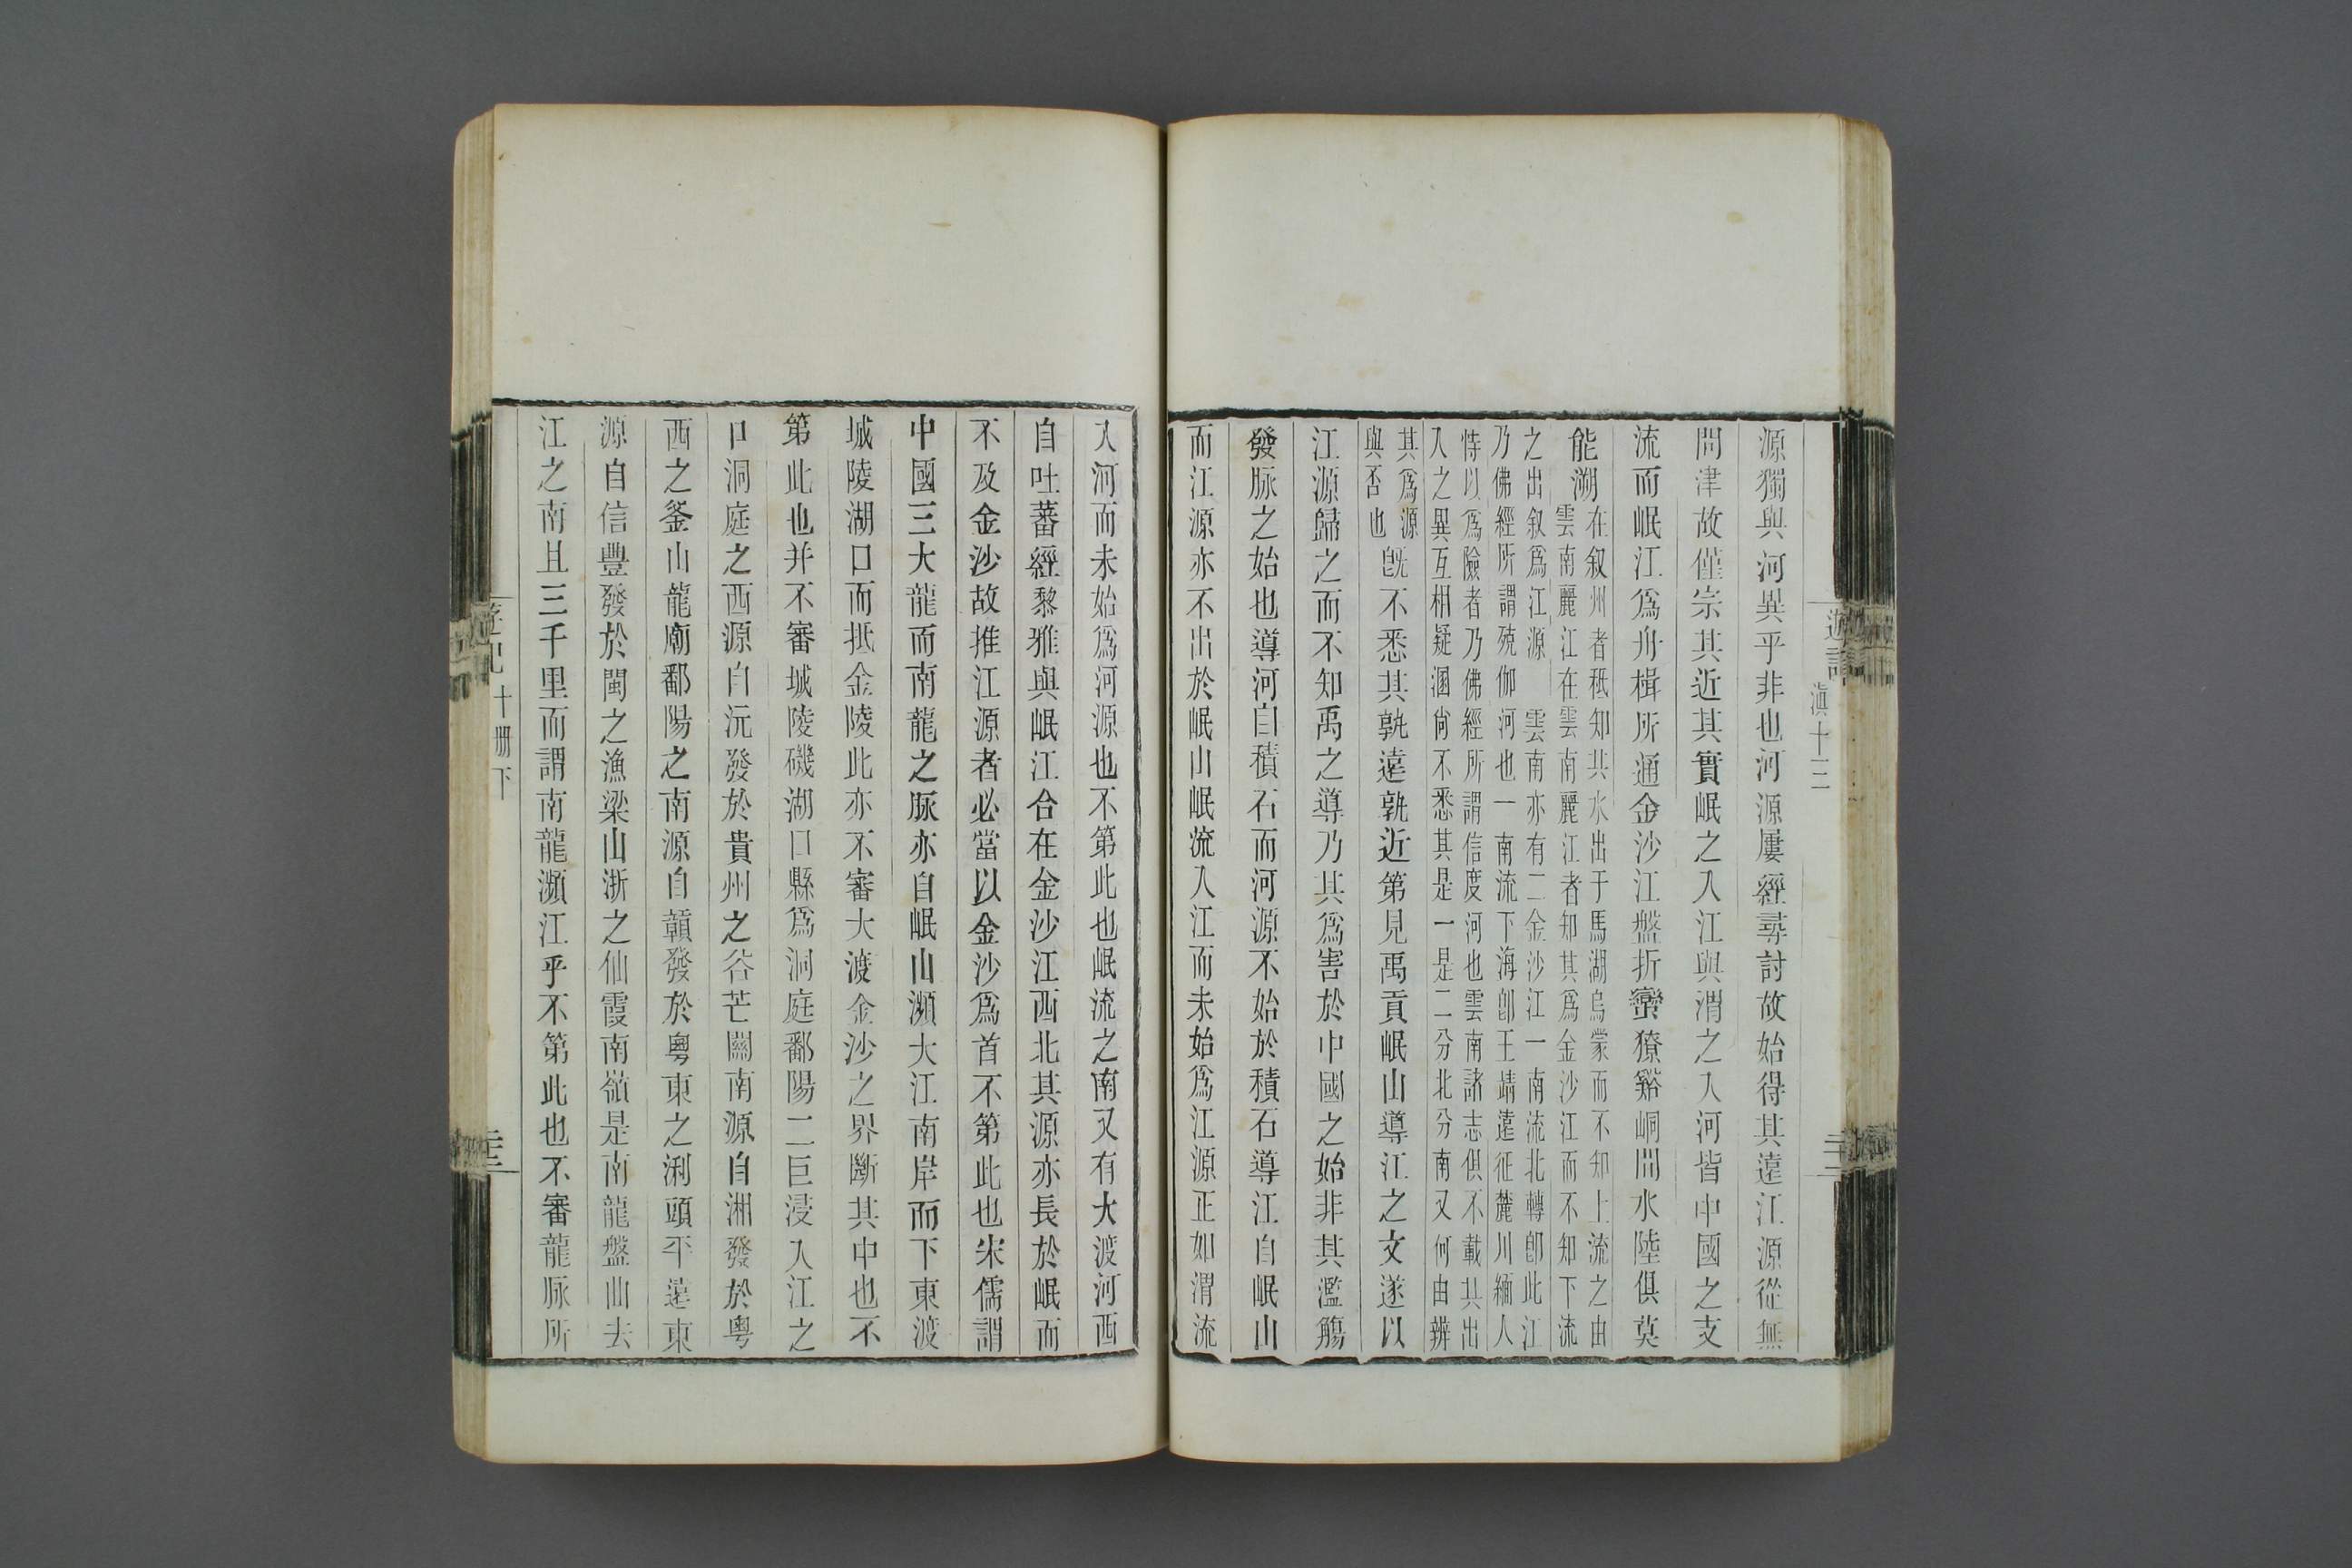 源獨與河異乎非也河源屢經尋討故始得其遠江源從無
問津故僅宗其近其實岷之入江與渭之入河皆中國之支
流而岷江爲舟楫所通金沙江盤折蠻獠谿峒間水陸俱莫
能溯在叙州者秪知其水出于馬湖烏蒙而不知上流之由
雲南麗江在雲南麗江者知其爲金沙江而不知下流
之出叙爲江源 雲南亦有二金沙江一南流北轉卽此江
乃佛經所謂殑伽河也一南流下海卽王靖遠征麓川緬人
恃以爲險者乃佛經所謂信度河也雲南諸志俱不載其出
入之異互相疑溷尙不悉其是一是二分北分南又何由辨
其爲源
與否也旣不悉其孰遠孰近第見禹貢岷山導江之文遂以
江源歸之而不知禹之導乃其爲害於中國之始非其濫觴
發脉之始也導河自積石而河源不始於積石導江自岷山
而江源亦不出於岷山岷流入江而未始爲江源正如渭流
遊記
滇十三
三十二
入河而未始爲河源也不第此也岷流之南又有大渡河西
自吐蕃經黎雅與岷江合在金沙江西北其源亦長於岷而
不及金沙故推江源者必當以金沙爲首不第此也宋儒謂
中國三大龍而南龍之脉亦自岷山瀕大江南岸而下東渡
城陵湖口而抵金陵此亦不審大渡金沙之界斷其中也不
第此也并不審城陵磯湖口縣爲洞庭鄱陽二巨浸入江之
口洞庭之西源自沅發於貴州之谷芒關南源自湘發於粤
西之釜山龍廟鄱陽之南源自贛發於粤東之浰頭平遠東
源自信豐發於閩之漁梁山浙之仙霞南嶺是南龍盤曲去
江之南且三千里而謂南龍瀕江乎不第此也不審龍脉所
遊記
十册下